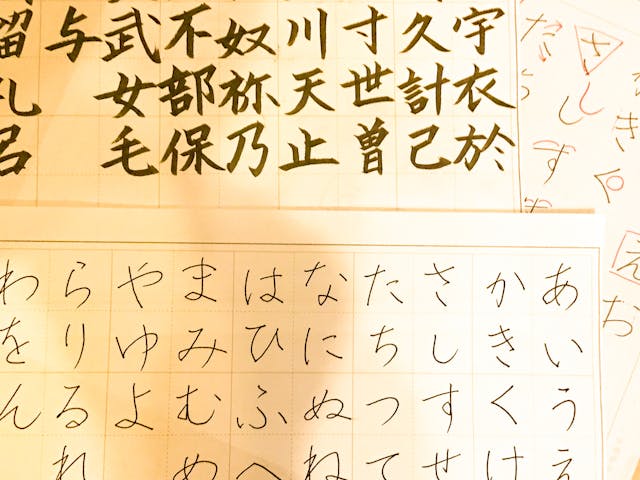 宇衣於
久計己
寸世曽
川天止
奴祢乃
不部保
武女毛
与
留礼呂
さしす
だ
き
え
あいうえ
かきくけ
さしすせ
たちつて
なにぬね
はひふへ
まみむめ
やゆよ
らりるれ
わをん